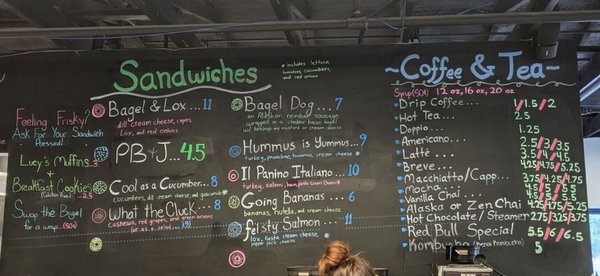 Sandwiches
* includes lettuce
tomatoes, cucumbers
and red onions
Feeling Frisky?
Ask For Your Sandwich
Pressed!
Lucy's Muffins 3
+
Breakfast Cookies
Swap the Bagel
for a wrap...(50¢)
Bagel & Lox... 11
dill cream cheese, capers,
Lox, and red onions
PB & J... 4.5
Cool as a Cucumber.. 8
cucumbers, dill cream cheese, and
What the Cluck... 8
cashews, red grapes, and green onions
Bagel Dog... 7
an Alaskan reindeer sausage
wrapped in a cheddar bacon bagel
w/ ketchup and mustard or cream cheese
Hummus is Yummus.. 9
turkey, provolone, hummus, cream cheese
Il Panino Italiano... 10
turkey, salami, ham,
Going Bananas... 6
bananas, nutella, and cream cheese
feisty Salmon... 11
lox, cream cheese,
pepper jack cheese
~Coffee & Tea~
Syrup(50¢) 12 oz, 16 oz, 20 oz
Drip Coffee... 1/1.5/2
Hot Tea... 2.5
Doppio... 1.25
Americano... 2.5/3/3.5
Latté... 3.5/4/4.5
Breve...
Macchiato/Capp...
Mocha...
Vanilla Chai...
Alaska or Zen Chai
Hot Chocolate/Steamer 2.75/3.25/3.75
Red Bull Special
Kombucha 5